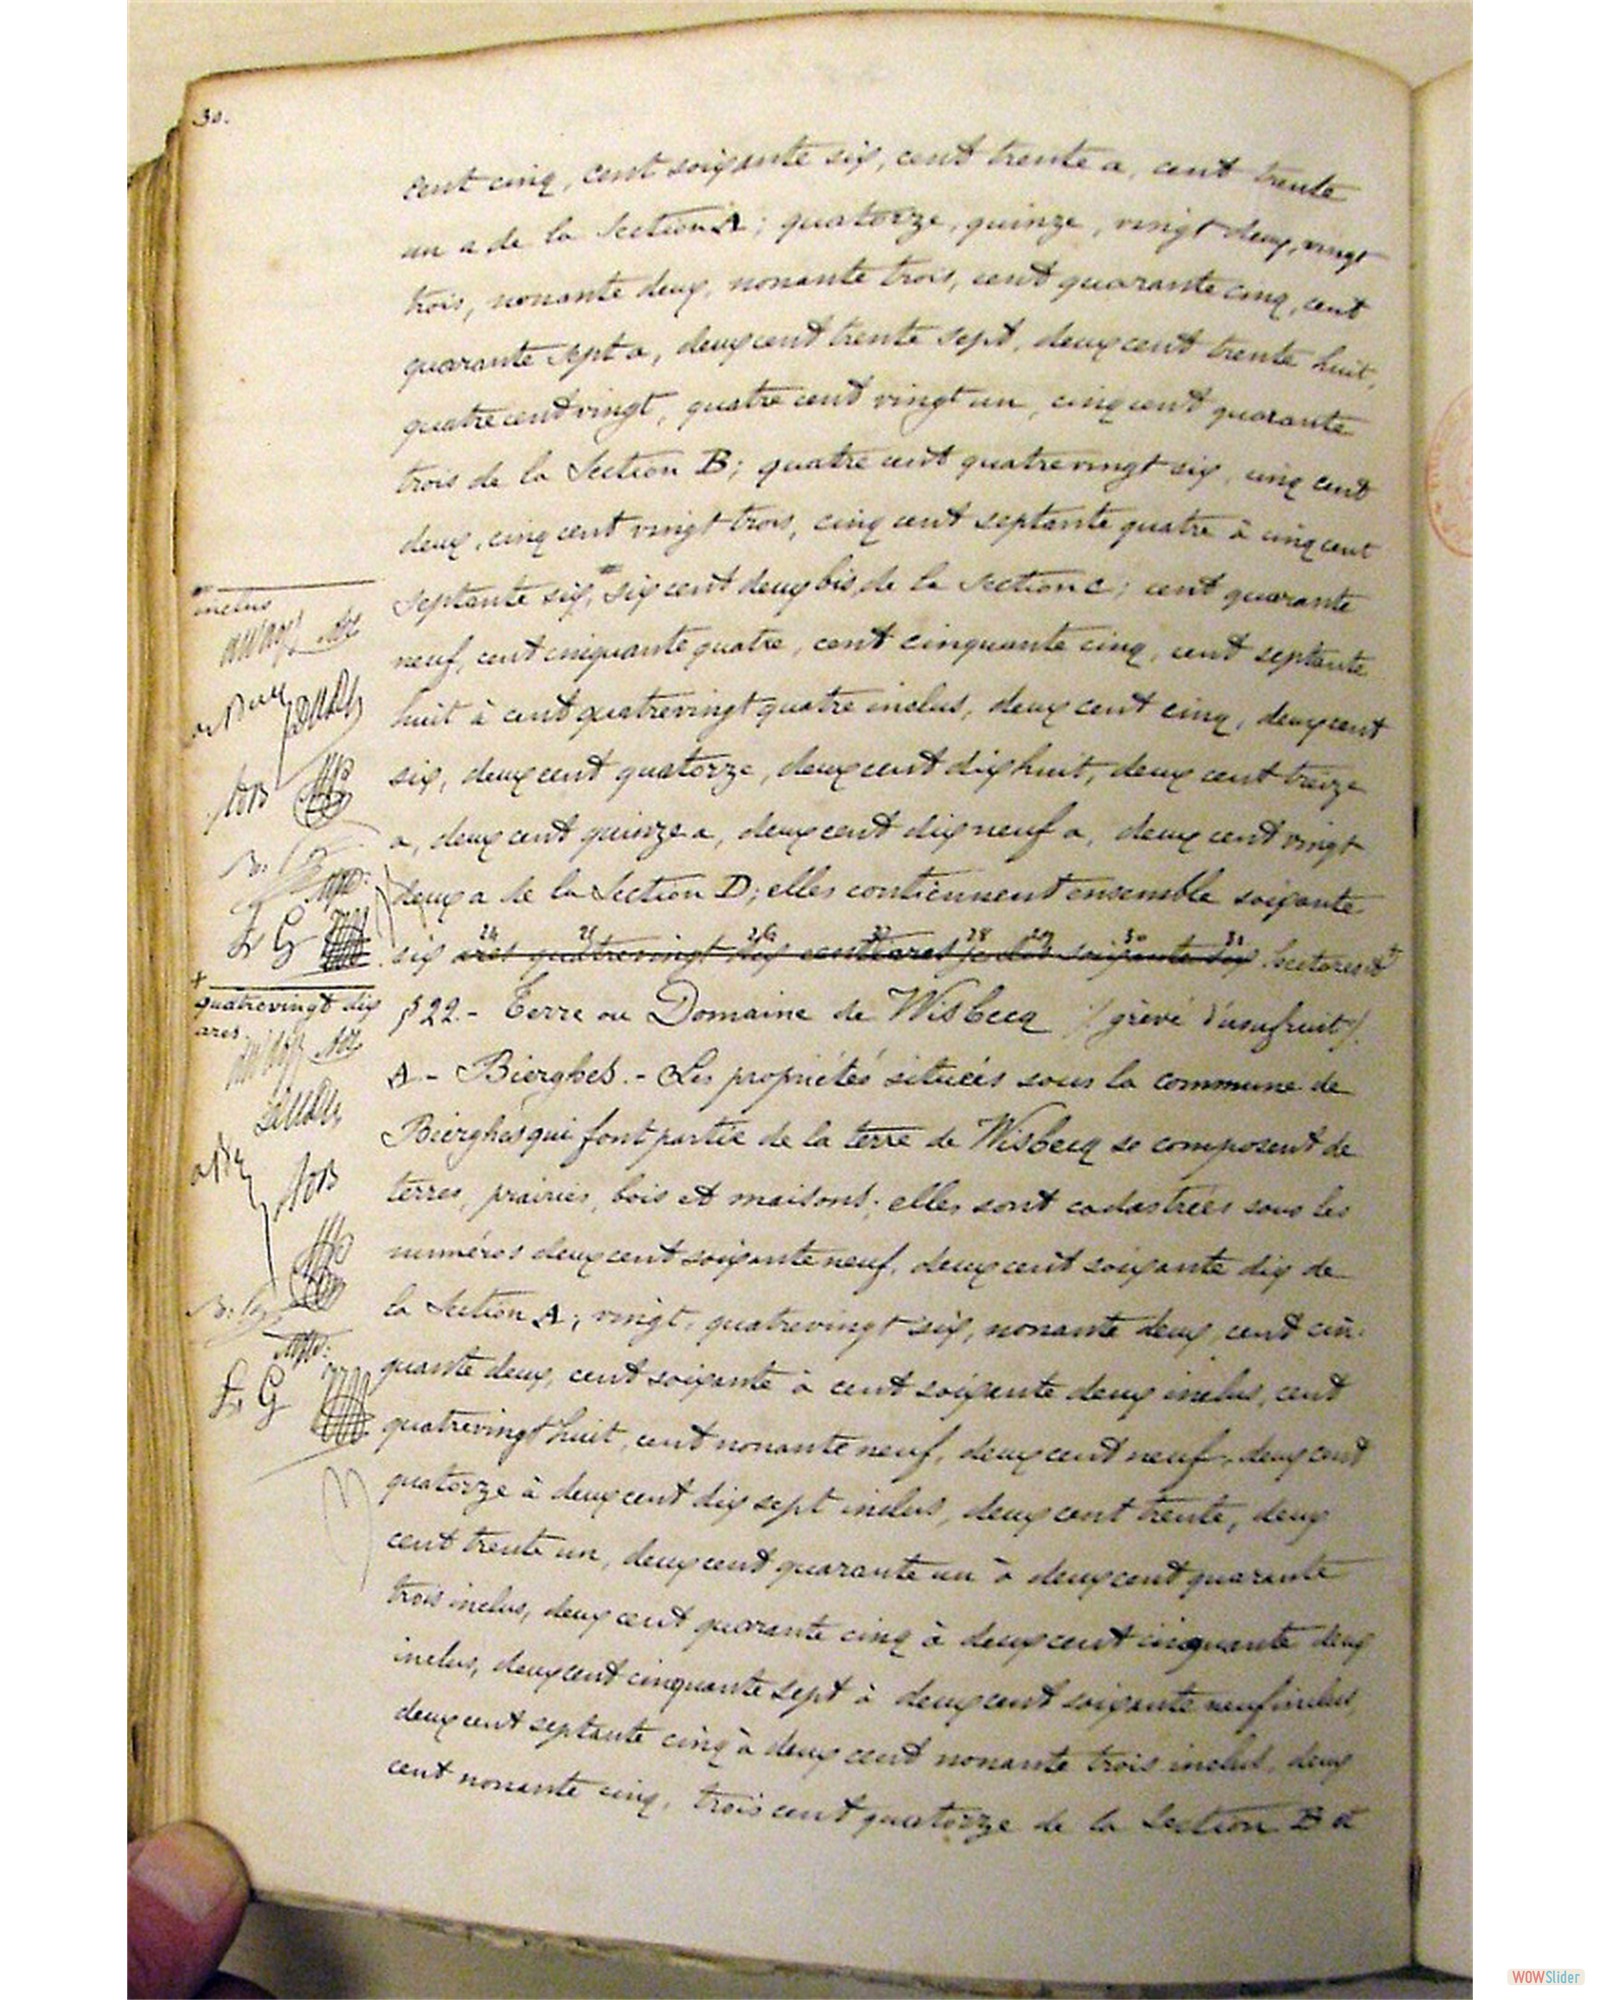 30.
cent cinq, cent soixante six, cent trente a, cent trente
un a de la Section A; quatorze, quinze, vingt deux, vingt
trois, nonante deux, nonante trois, cent quarante cinq, cent
quarante sept a, deux cent trente sept, deux cent trente huit,
quatre cent vingt, quatre cent vingt un, cinq cent quarante
trois de la Section B; quatre cent quatrevingt six, cinq cent
deux, cinq cent vingt trois, cinq cent septante quatre à cinq cent
septante six, six cent deux bis, de la Section C; cent quarante
inclus
neuf, cent cinquante quatre, cent cinquante cinq, cent septante
huit à cent quatrevingt quatre inclus, deux cent cinq, deux cent
six, deux cent quatorze, deux cent dix huit, deux cent treize
a, deux cent quinze a, deux cent dix neuf a, deux cent vingt
deux a de la Section D; elles contiennent ensemble soixante
six ares quatrevingt dix centiares soixante six hectares et
+
quatrevingt dix
ares
§ 22. - Terre ou Domaine de Wisbecq (grévé d'usufruit).
A. - Bierghes. - Les propriétés situées sous la commune de
Bierghes qui font partie de la terre de Wisbecq se composent de
terres, prairies, bois et maisons; elles sont cadastrées sous les
numéros deux cent soixante neuf, deux cent soixante dix de
la Section A; vingt, quatrevingt six, nonante deux, cent cin-
quante deux, cent soixante à cent soixante deux inclus, cent
quatrevingt huit, cent nonante neuf, deux cent neuf, deux cent
quatorze à deux cent dix sept inclus, deux cent trente, deux
cent trente un, deux cent quarante un à deux cent quarante
trois inclus, deux cent quarante cinq à deux cent cinquante deux
inclus, deux cent cinquante sept à deux cent soixante neuf inclus,
deux cent septante cinq à deux cent nonante trois inclus, deux
cent nonante cinq, trois cent quatorze de la Section B et
WOWSlider